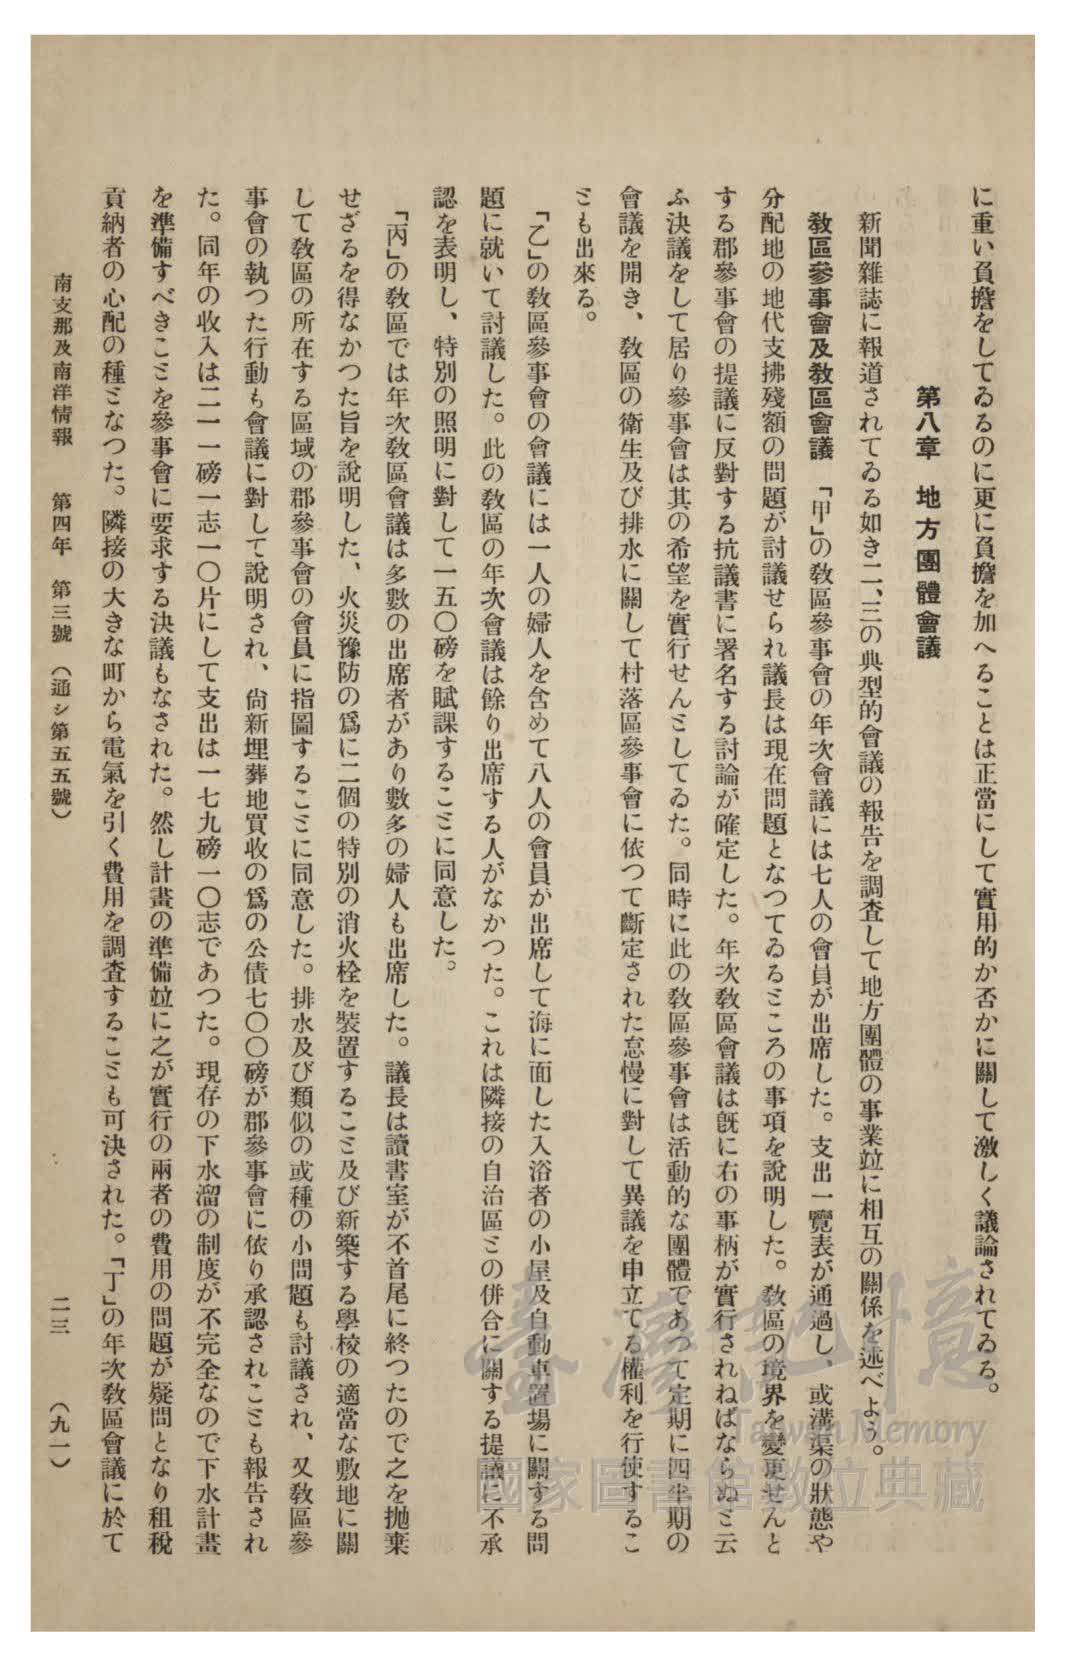 に重い負擔をしてゐるのに更に負擔を加へることは正當にして實用的か否かに關して激しく議論されてゐる。
第八章 地方團體會議
新聞雜誌に報道されてゐる如き二、三の典型的會議の報告を調査して地方團體の事業竝に相互の關係を述べよう。
敎區參事會及敎區會議 「甲」の敎區參事會の年次會議には七人の會員が出席した。支出一覽表が通過し、或溝渠の狀態や
分配地の地代支拂殘額の問題が討議せられ議長は現在問題となつてゐるところの事項を說明した。敎區の境界を變更せんと
する郡參事會の提議に反對する抗議書に署名する討論が確定した。年次敎區會議は旣に右の事柄が實行されねばならぬと云
ふ決議をして居り參事會は其の希望を實行せんとしてゐた。同時に此の敎區參事會は活動的な團體であつて定期に四半期の
會議を開き、敎區の衛生及び排水に關して村落區參事會に依つて斷定された怠慢に對して異議を申立てる權利を行使するこ
とも出來る。
「乙」の敎區參事會の會議には一人の婦人を含めて八人の會員が出席して海に面した入浴者の小屋及自動車置場に關する問
題に就いて討議した。此の敎區の年次會議は餘り出席する人がなかつた。これは隣接の自治區との併合に關する提議に不承
認を表明し、特別の照明に對して一五〇磅を賦課することに同意した。
「丙」の敎區では年次敎區會議は多數の出席者があり數多の婦人も出席した。議長は讀書室が不首尾に終つたので之を拋棄
せざるを得なかつた旨を說明した、火災豫防の爲に二個の特別の消火栓を裝置すること及び新築する學校の適當な敷地に關
して敎區の所在する區域の郡參事會の會員に指圖することに同意した。排水及び類似の或種の小問題も討議され、又敎區參
事會の執つた行動も會議に對して說明され、尙新埋葬地買收の爲の公債七〇〇磅が郡參事會に依り承認されことも報告され
た。同年の收入は二一一磅一志一〇片にして支出は一七九磅一〇志であつた。現存の下水溜の制度が不完全なので下水計畫
を準備すべきことを參事會に要求する決議もなされた。然し計畫の準備竝に之が實行の兩者の費用の問題が疑問となり租稅
貢納者の心配の種となつた。隣接の大きな町から電氣を引く費用を調査することも可決された。「丁」の年次敎區會議に於て
南支那及南洋情報 第四年 第三號 (通シ第五五號) 二三 (九一)
臺灣記憶
Taiwan Memory
國家圖書館數位典藏